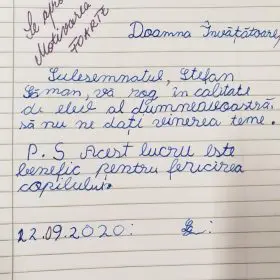 Se apro
Motivarea
FOARTE
Doamna Învățătoare,
Subsemnatul, Ștefan
vă rog, în calitate
de elev al dumneavoastră,
să nu ne dați vinerea teme.
P. S Acest lucru este
benefic pentru fericirea
copilului.
22.09.2020: